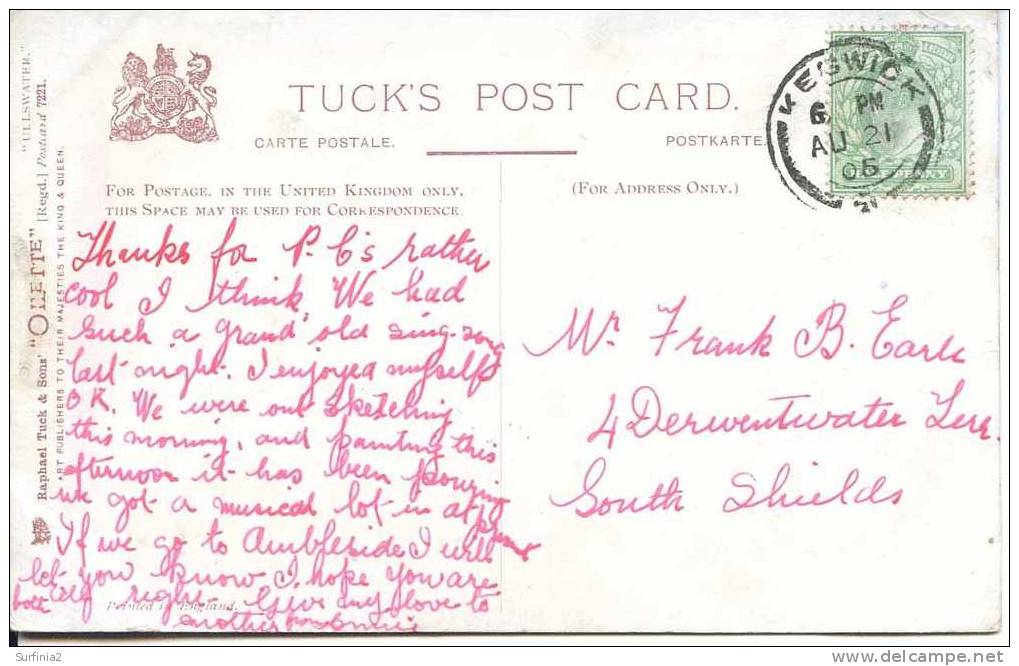 TUCK'S POST CARD.
CARTE POSTALE.
POSTKARTE.
FOR POSTAGE, IN THE UNITED KINGDOM ONLY,
THIS SPACE MAY BE USED FOR CORRESPONDENCE.
(FOR ADDRESS ONLY.)
"ULLSWATER."
Raphael Tuck & Sons' "OILETTE" [Regd.] Postcard 7221.
ART PUBLISHERS TO THEIR MAJESTIES THE KING & QUEEN.
KESWICK
6 PM
AU 21
05
Thanks for P.C's rather
cool I think, We had
such a grand old sing-song
last night. I enjoyed myself
OK. We were out sketching
this morning, and painting this
afternoon it has been pouring
we got a musical lot in at present
If we go to Ambleside I will
let you know I hope you are
all right. Give my love to
both
mother from
Printed in England.
Mr Frank B. Earle
4 Derwentwater Terr.
South Shields
Surfinia2
www.delcampe.net